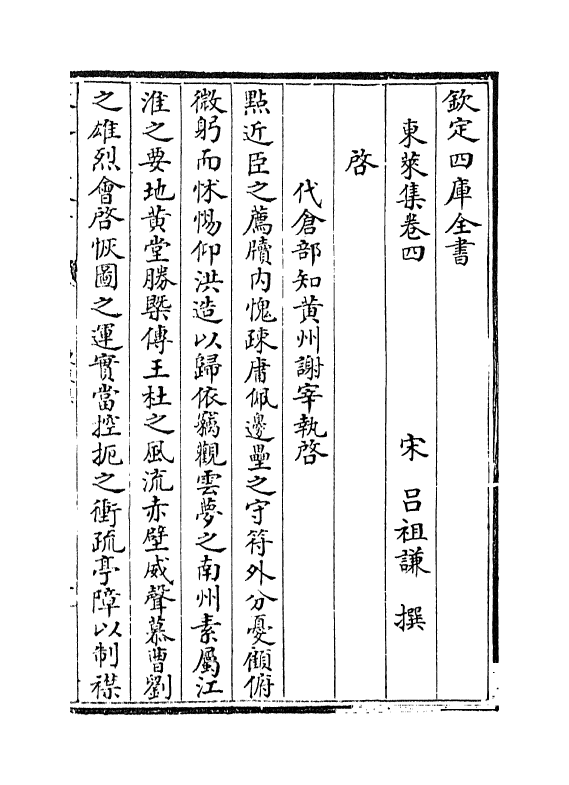 欽定四庫全書
東萊集卷四
宋 吕祖謙 撰
啓
代倉部知黄州謝宰執啓
點近臣之薦牘内愧疎庸佩邊壘之守符外分憂顧俯
微躬而怵惕仰洪造以歸依竊觀雲夢之南州素屬江
淮之要地黄堂勝槩傳王杜之風流赤壁威聲慕曹劉
之雄烈會啓恢圖之運實當控扼之衝疏亭障以制禖